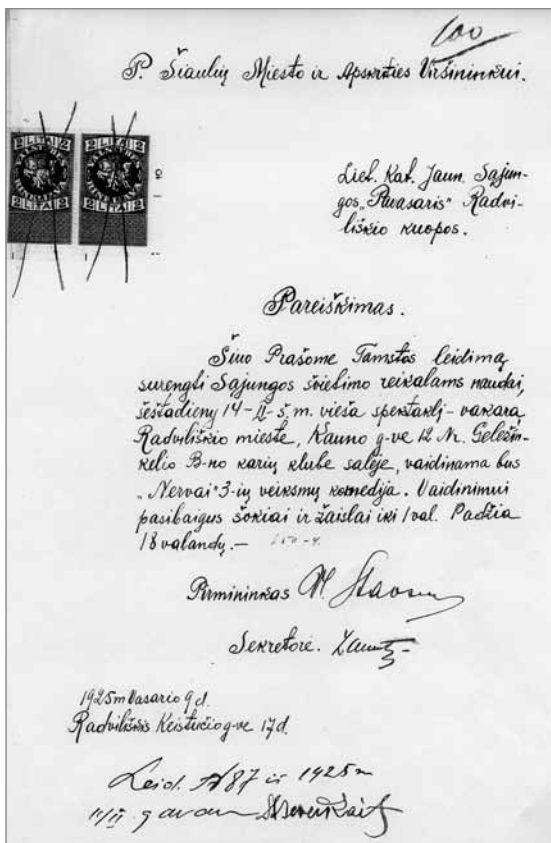 100
P. Šiaulių Miesto ir Apskrities Viršininkui.
2 LITAI 2 2 LITAI 2
2 LITAI 2 2 LITAI 2
Liet. Kat. Jaun. Sąjun-
gos „Pavasaris" Radvi-
liškio kuopos.
Pareiškimas.
Šiuo Prašome Tamstos leidimą
surengti Sąjungos švietimo reikalams naudai,
šeštadieny 14-II-š.m. viešą spektaklį-vakarą
Radviliškio mieste, Kauno g-ve 12 Nr. Geležin-
kelio B-no karių klube salėje, vaidinama bus
„Nervai" 3-ių veiksmų komedija. Vaidinimui
pasibaigus šokiai ir žaislai iki 1 val. Padžia
18 valandų.—
Pirmininkas
Sekretorė.
1925m Vasario 9 d.
Radviliškis Keistučio g-ve 17 d.
Leid. N 87 iš 1925 m
11/II. gavau